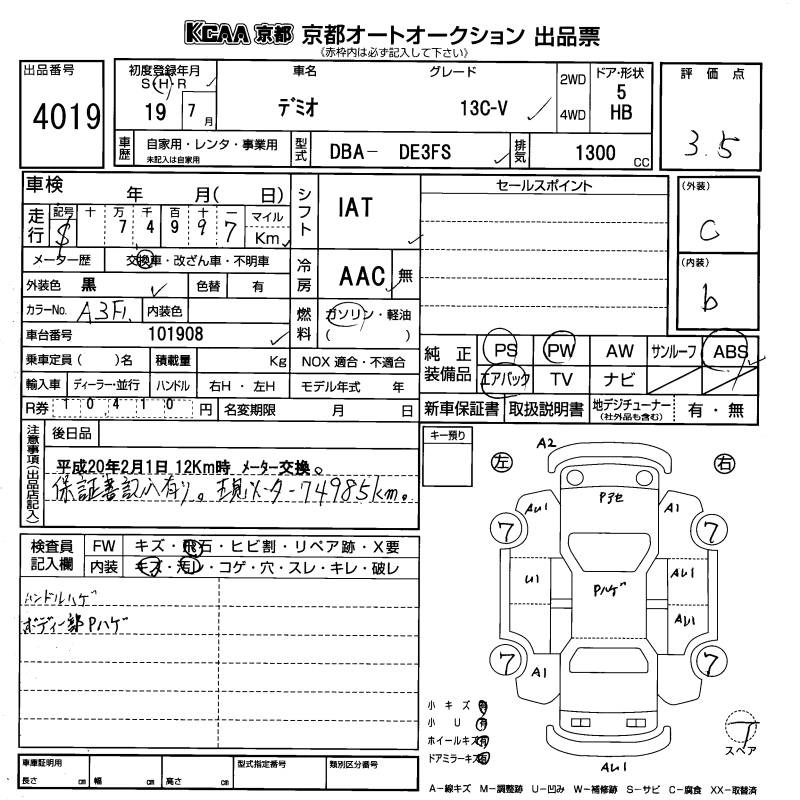 KCAA 京都 京都オートオークション 出品票
(赤枠内は必ず記入して下さい)
出品番号
4019
初度登録年月
S・H・R
19 7月
車名 グレード
デミオ 13C-V
2WD
4WD
ドア・形状
5
HB
評価点
3.5
車歴 自家用・レンタ・事業用
未記入は自家用
型式 DBA- DE3FS
排気 1300 cc
車検 年 月( 日)
走行 記号 十 万 千 百 十 一 マイル
$ 7 4 9 9 7 Km
メーター歴 交換車・改ざん車・不明車
外装色 黒 色替 有
カラーNo. A3F 内装色
車台番号 101908
乗車定員( )名 積載量 Kg
輸入車 ディーラー・並行 ハンドル 右H・左H
R券 10410 円 名変期限 月 日
シフト IAT
冷房 AAC 無
燃料 ガソリン・軽油
( )
NOX 適合・不適合
モデル年式 年
セールスポイント
(外装)
C
(内装)
b
純正装備品 PS PW AW サンルーフ ABS
エアバック TV ナビ
新車保証書 取扱説明書 地デジチューナー
(社外品も含む) 有・無
注意事項(出品店記入)
後日品
平成20年2月1日 12Km時 メーター交換。
保証書記入有り。現メーター74985km。
キー預り
検査員記入欄
FW キズ・飛石・ヒビ割・リペア跡・X要
内装 キズ・汚レ・コゲ・穴・スレ・キレ・破レ
ハンドルハゲ
ボディー部Pハゲ
A2
左 右
AU1 A1
7 7
U1 Pハゲ AU1
AU1
7 7
A1
AU1
小キズ 有
小U 有
ホイールキズ 有
ドアミラーキズ 有
T
スペア
A-線キズ M-調整跡 U-凹み W-補修跡 S-サビ C-腐食 XX-取替済
車庫証明用
長さ cm 幅 cm 高さ cm
型式指定番号
類別区分番号